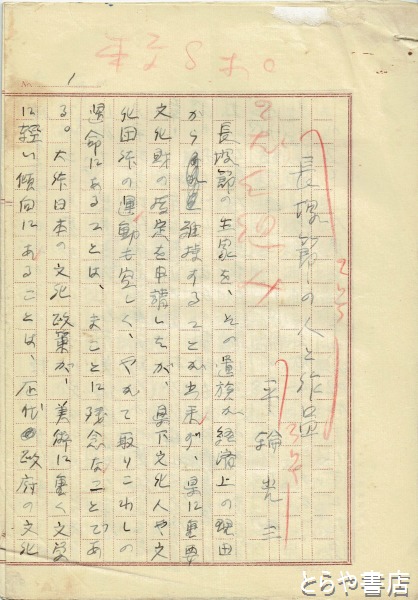 No. 1
本文8ポ。
長塚節の人と作品
平輪光三
長塚節の生家を、その遺族が経済上の理由
から維持することが出来ず、県に重要
文化財の指定を申請したが、県下文化人や文
化団体の運動も空しく、やがて取りこわしの
運命にあることは、まことに残念なことであ
る。大体日本の文化政策が、美術に重く文学
に軽い傾向にあることは、歴代の政府の文化
とらや書店